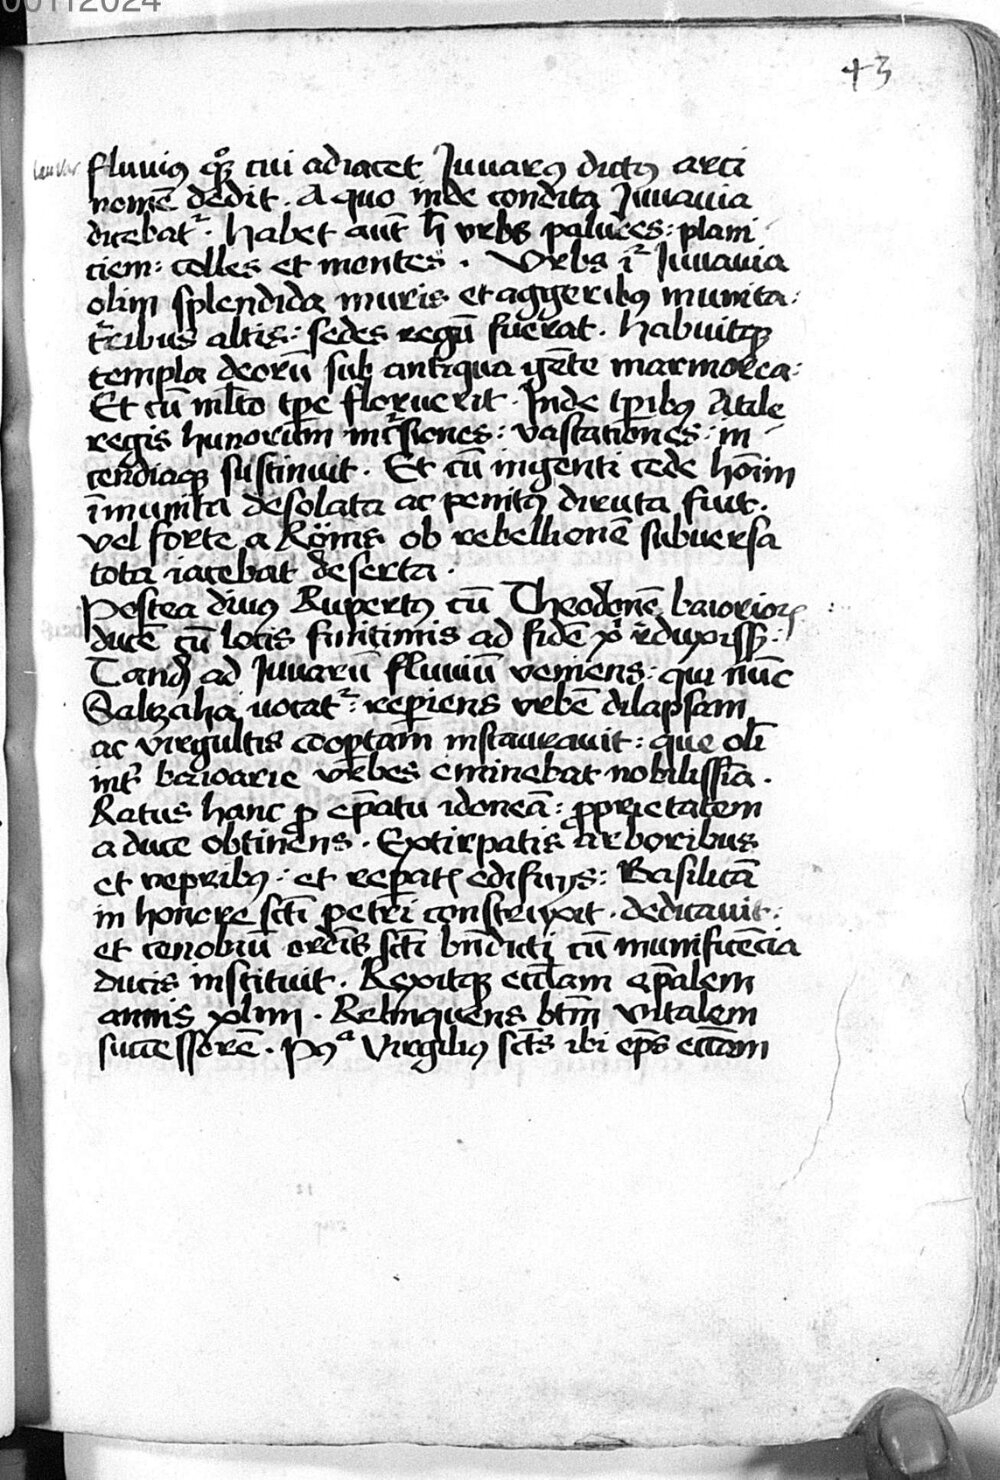 00112024
43
fluuiꝰ qͦꝫ cui adiacet Juuarꝰ dictꝰ arci
nomē dedit . A quo inde condita Juuauia
dicebatᷣ . Habet aūt h̄ vrbs paludes : plani
ciem : colles et montes . Vrbs iᷣ Juuauia
olim splendida muris et aggeribꝰ munita :
turribus altis : sedes regū fuerat . Habuitqꝫ
templa deorū sub antiqua gēte marmorea :
Et cū ml̄to tp̄e floruerit . Inde tp̄ribꝰ Atile
regis hunorum incᷣsiones : vastationes : in
cendiaqꝫ sustinuit . Et cū ingenti cede hoīm
īmunita desolata ac penitꝰ diruta fuit .
vel forte a Romīs ob rebellionē subuersa
tota iacebat deserta .
Postea diuꝰ Rupertꝰ cū Theodonē baiorioꝝ :
ducē cū locis finitimis ad fidē xͥ rͤduxissꝫ :
Tandē ad Juuarū fluuiū veniens : qui nūc
Saltzaha uocatᷣ : reperiens vrbē dilapsam
ac virgultis coop̄tam instaurauit : que olī
intᷣ baioarie vrbes eminebat nobilissīa .
Ratus hanc ꝓ ep̄atu idoneā : ꝓprietatem
a duce obtinens . Extirpatis arboribus
et vepribꝰ : et rep̄atꝭ edificijs : Basilicā
in honore scti petri construxit . dedicauit :
et cenobiū ordīs scti bn̄dicti cū munificēcia
ducis instituit . Rexitqꝫ eccl̄am ep̄alem
annis xliiij . Relinquens btm̄ vitalem
successorē . Pꝰᵃ Virgiliꝰ scts ibi ep̄s eccl̄am